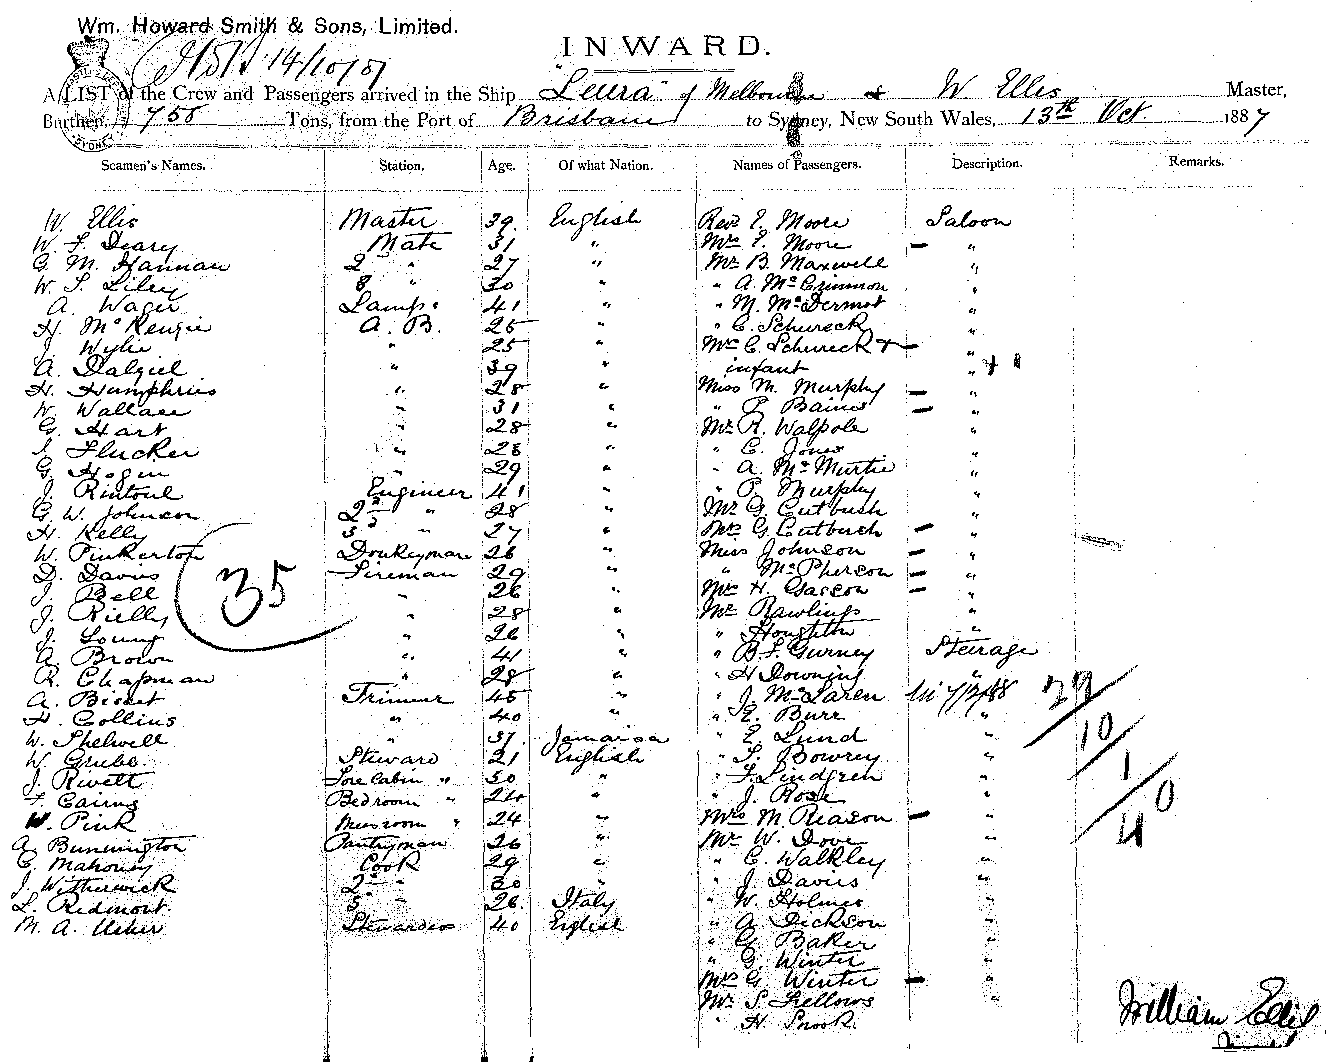 Wm. Howard Smith & Sons, Limited.
14/10/87
INWARD.
A LIST of the Crew and Passengers arrived in the Ship "Leura" of Melbourne W Ellis Master,
Burthen, 758 Tons, from the Port of Brisbane to Sydney, New South Wales, 13th Oct 1887
Seamen's Names. Station. Age. Of what Nation. Names of Passengers. Description. Remarks.
W. Ellis Master 39 English Revd E. Moore Saloon
W. F. Deary Mate 31 " Mrs E. Moore "
G. M. Hannan 2 " 27 " Mr B. Maxwell "
W. S. Liley 3 " 30 " " A. McCrimmon "
A. Wager Lamps 41 " " M. McDermot "
H. McKenzie A. B. 25 " " C. Schureck "
J. Wylie " 25 " Mrs C. Schureck + "
A. Dalziel " 39 " infant " + 1
H. Humphries " 28 " Miss M. Murphy "
W. Wallace " 31 " " P. Baines "
G. Hart " 28 " Mr R. Walpole "
Flucker " 28 " " C. Jones "
G. Hogin " 29 " " A. McMurtie "
J. Rintoul Engineer 41 " " P. Murphy "
G. W. Johnson 2nd " 28 " Mr G. Cutbush "
H. Kelly 3 " 27 " Mrs G. Cutbush "
W. Pinkerton Donkeyman 26 " Miss Johnson "
D. Davis Fireman 29 " " McPherson "
J. Bell " 26 " Mrs H. Gasson "
J. Rielly " 28 " Mr Rawlings "
35
J. Young " 26 " " Houghton "
A. Brown " 41 " " B. F. Gurney Steerage
R. Chapman " 28 " " H. Downing "
A. Bisset Trimmer 45 " " J. McLaren
H. Collins " 40 " " E. Burr "
W. Shelwell " 37 Jamaica " E. Lund "
W. Grube Steward 21 English " S. Bowrey "
J. Rivett Fore Cabin " 30 " " F. Lindgren "
F. Cairns Bedroom " 24 " " J. Rose "
W. Pink Messroom " 24 " Mrs M Reason "
A. Bunnington Pantryman 26 " Mr W. Dove "
G. Mahoney Cook 29 " " C. Walkley "
J. Witherwick 2nd " 30 " " J. Davies "
L. Redmont 3 " 26 Italy " W. Holmes "
M. A. Usher Stewardess 40 English " A. Dickson "
" G. Baker "
" G. Winter "
Mrs G Winter "
Mr S. Fellows "
" H. Snook
29
10
1
40
William Ellis